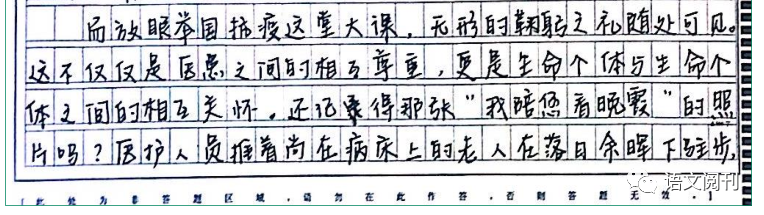 而放眼举国抗疫这堂大课，无形的鞠躬之礼随处可见。
这不仅仅是医患之间的相互尊重，更是生命个体与生命个
体之间的相互关怀。还记得那张“我陪您看晚霞”的照
片吗？医护人员推着尚在病床上的老人在落日余晖下驻步，
[此处为非答题区域，请勿在此作答，否则答题无效。]
语文阅刊